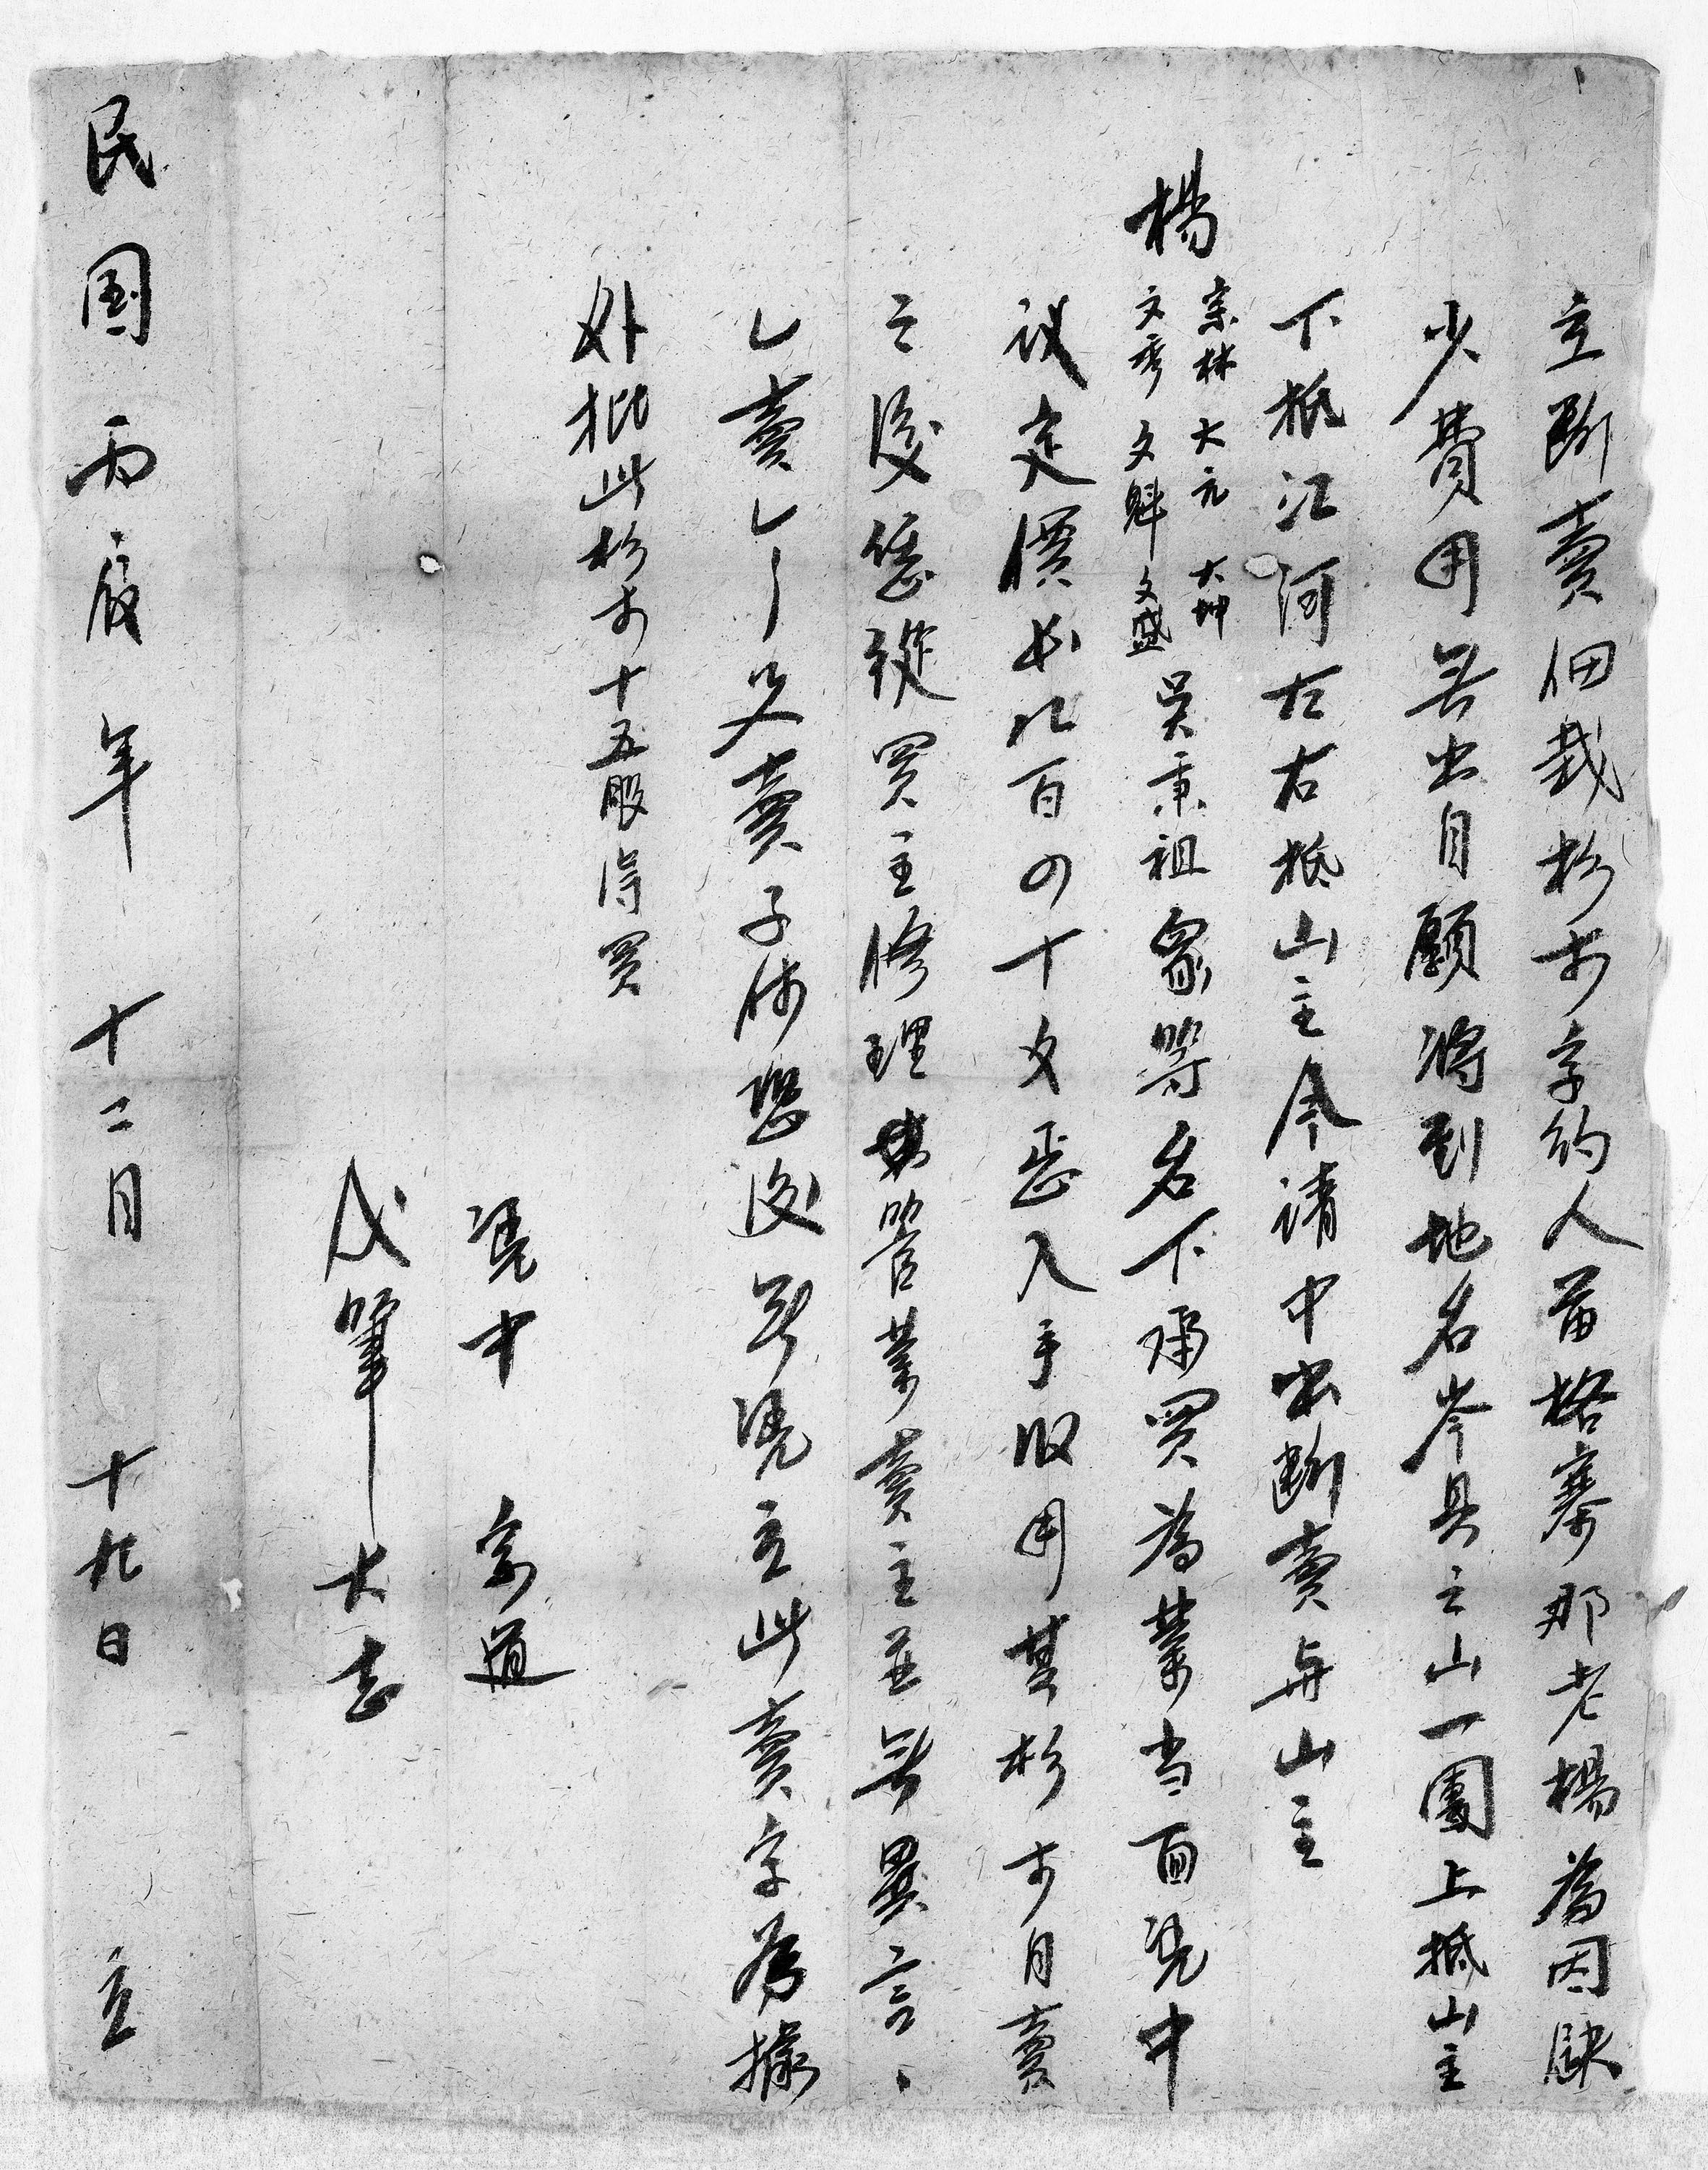 立断賣佃栽杉木字約人苗格寨那老楊為因缺
少費用無出自願將到地名岑具之山一團上抵山主
下抵江河左右抵山主今请中出断賣与山主
楊宗林大元大坤文秀文魁文盛吴秉祖象等名下承買為業当面凭中
议定價式仟九百四十文忢入手収用其杉木自賣
之後恁從買主修理管業賣主並無異言、
乚賣乚丨父賣子休恐後無凭立此賣字為據
外批此杉木十五股淂買
凭中 宗道
代筆 大志
民国丙辰年十二月十九日 立